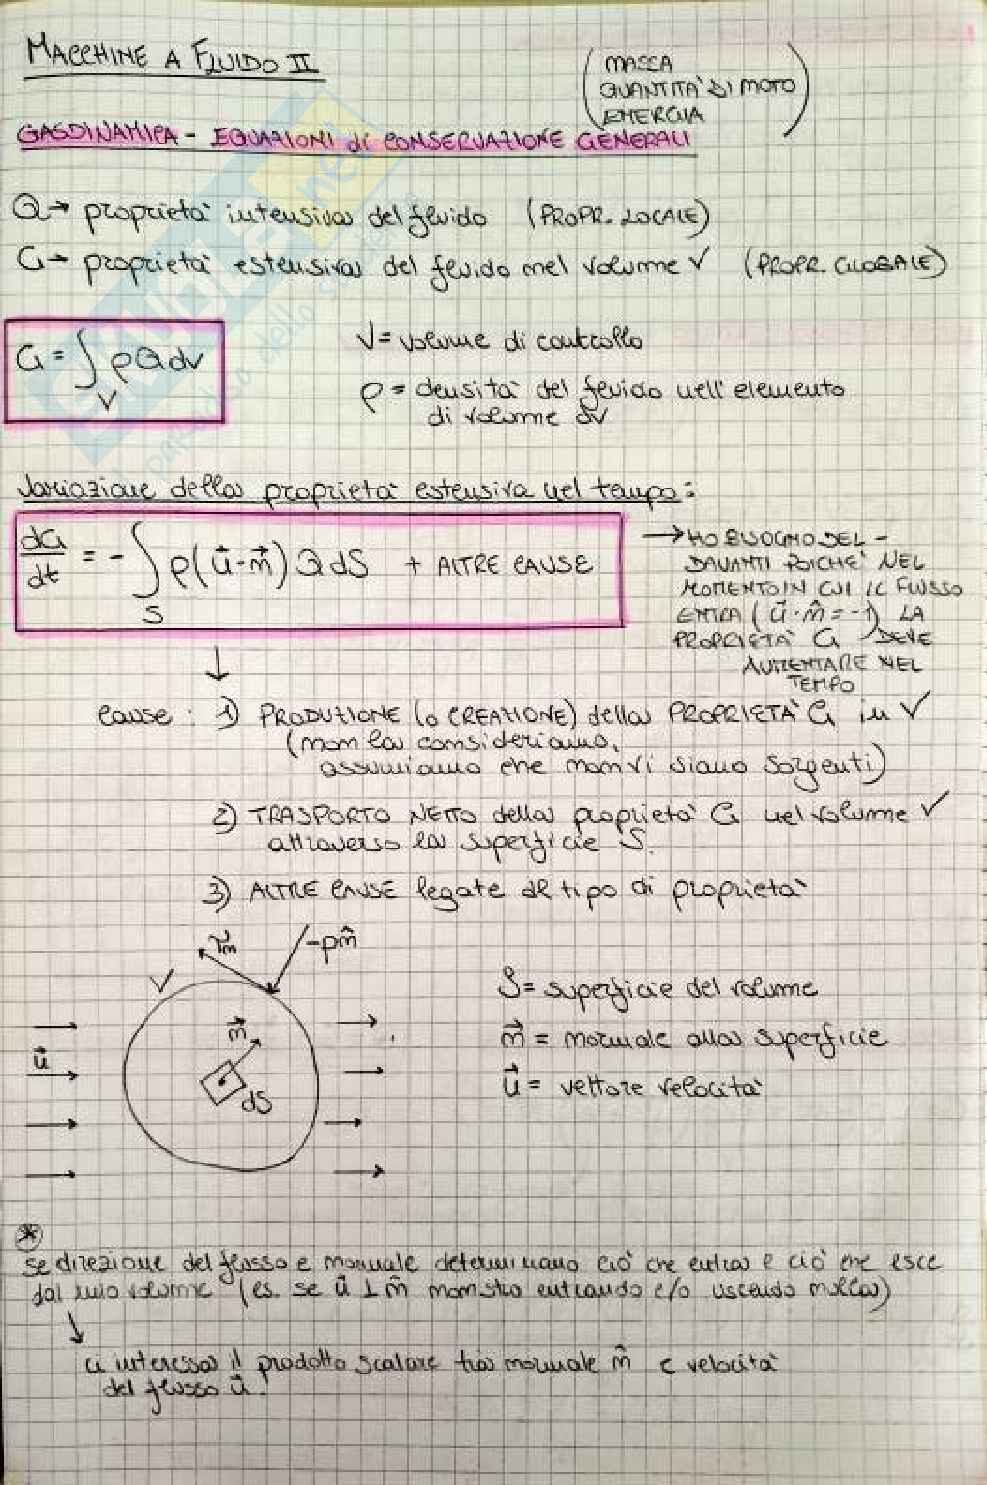 MACCHINE A FLUIDO II
(MASSA
QUANTITA' DI MOTO
ENERGIA)
GASDINAMICA - EQUAZIONI di CONSERVAZIONE GENERALI
Q → proprietà intensiva del fluido (PROPR. LOCALE)
G → proprietà estensiva del fluido nel volume V (PROPR. GLOBALE)
G = ∫_V ρ Q dV
V = volume di controllo
ρ = densità del fluido nell'elemento
di volume dV
Variazione della proprietà estensiva nel tempo:
dG/dt = - ∫_S ρ(ū·n̄) Q dS + ALTRE CAUSE
→ HO BISOGNO DEL -
DAVANTI POICHE' NEL
MOMENTO IN CUI IL FLUSSO
ENTRA (ū·n̂ = -1) LA
PROPRIETA' G DEVE
AUMENTARE NEL
TEMPO
↓
cause: 1) PRODUZIONE (o CREAZIONE) della PROPRIETA' G in V
(non la consideriamo,
assumiamo che non vi siano sorgenti)
2) TRASPORTO NETTO della proprietà G nel volume V
attraverso la superficie S.
3) ALTRE CAUSE legate al tipo di proprietà
τn
-pn̂
V
n̄
ū
dS
S = superficie del volume
n̄ = normale alla superficie
ū = vettore velocità
*
se direzione del flusso e normale determinano ciò che entra e ciò che esce
dal mio volume (es. se ū ⊥ n̂ non sta entrando e/o uscendo nulla)
↓
ci interessa il prodotto scalare tra normale n̂ e velocità
del flusso ū.